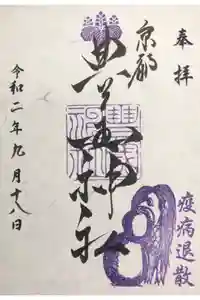 奉拝
京都
豊国神社
令和二年九月十八日
疫病退散